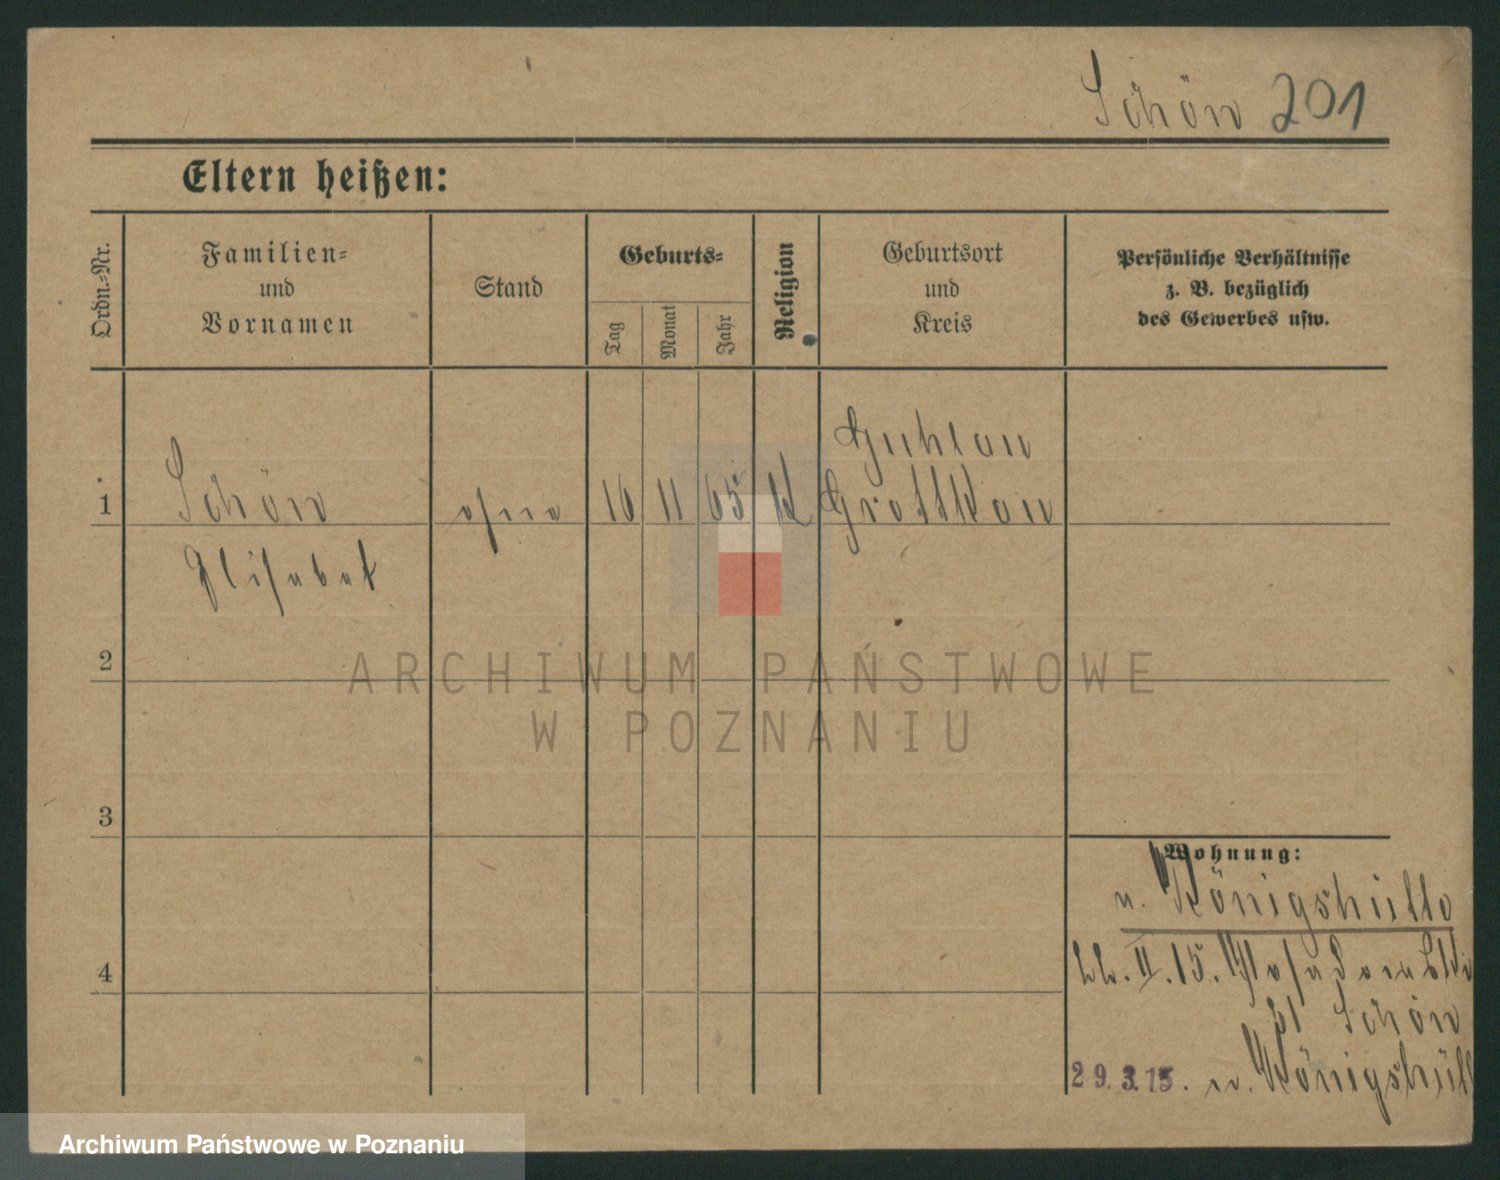 Schön 201
Eltern heißen:
Ordn.-Nr.
Familien-
und
Vornamen
Stand
Geburts-
Tag
Monat
Jahr
Religion
Geburtsort
und
Kreis
Persönliche Verhältnisse
z. B. bezüglich
des Gewerbes usw.
1
Schön
Elisabet
ohne
16
11
65
K
Guhlau
Grottkau
2
3
4
Wohnung:
n. Königshütte
22. II. 15.
Schön
29.3.15. n. Königshütt
ARCHIWUM PAŃSTWOWE
W POZNANIU
Archiwum Państwowe w Poznaniu